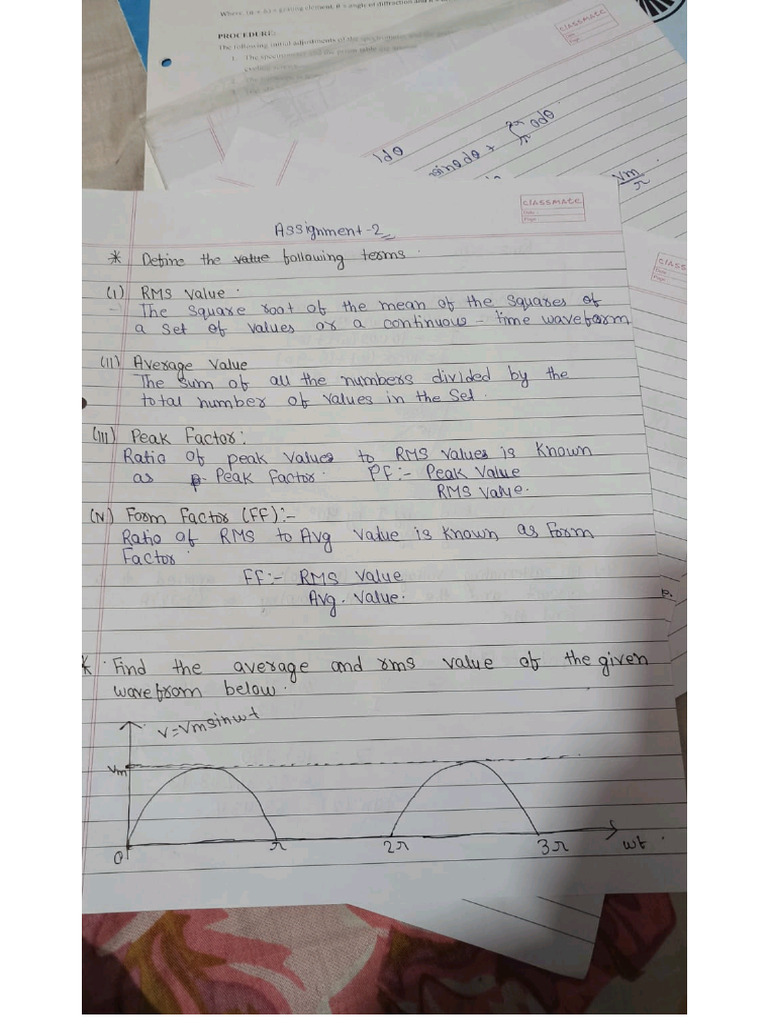 Where, (a + b) = grating element, θ = angle of diffraction and
PROCEDURE:
The following initial adjustments of the spectrometer and the
1. The spectrometer and the prism table are
CLASSMATE
Date
Page
1dθ
sinθdθ +
dθ
Vm
π
CLASSMATE
Date
Page
CLASSMATE
Date
Page
Assignment-2
* Define the value following terms.
(I) RMS Value.
The square root of the mean of the squares of
a set of values or a continuous - time waveform
(II) Average Value
The sum of all the numbers divided by the
total number of values in the Set.
(III) Peak Factor:
Ratio of peak values to RMS values is known
as p. Peak Factor. PF:- Peak Value
RMS Value.
(IV) Form Factor (FF):-
Ratio of RMS to Avg value is known as Form
Factor.
FF:- RMS Value
Avg. Value.
* Find the average and rms value of the given
wavefrom below.
V=Vmsinwt
Vm
0 π 2π 3π wt.